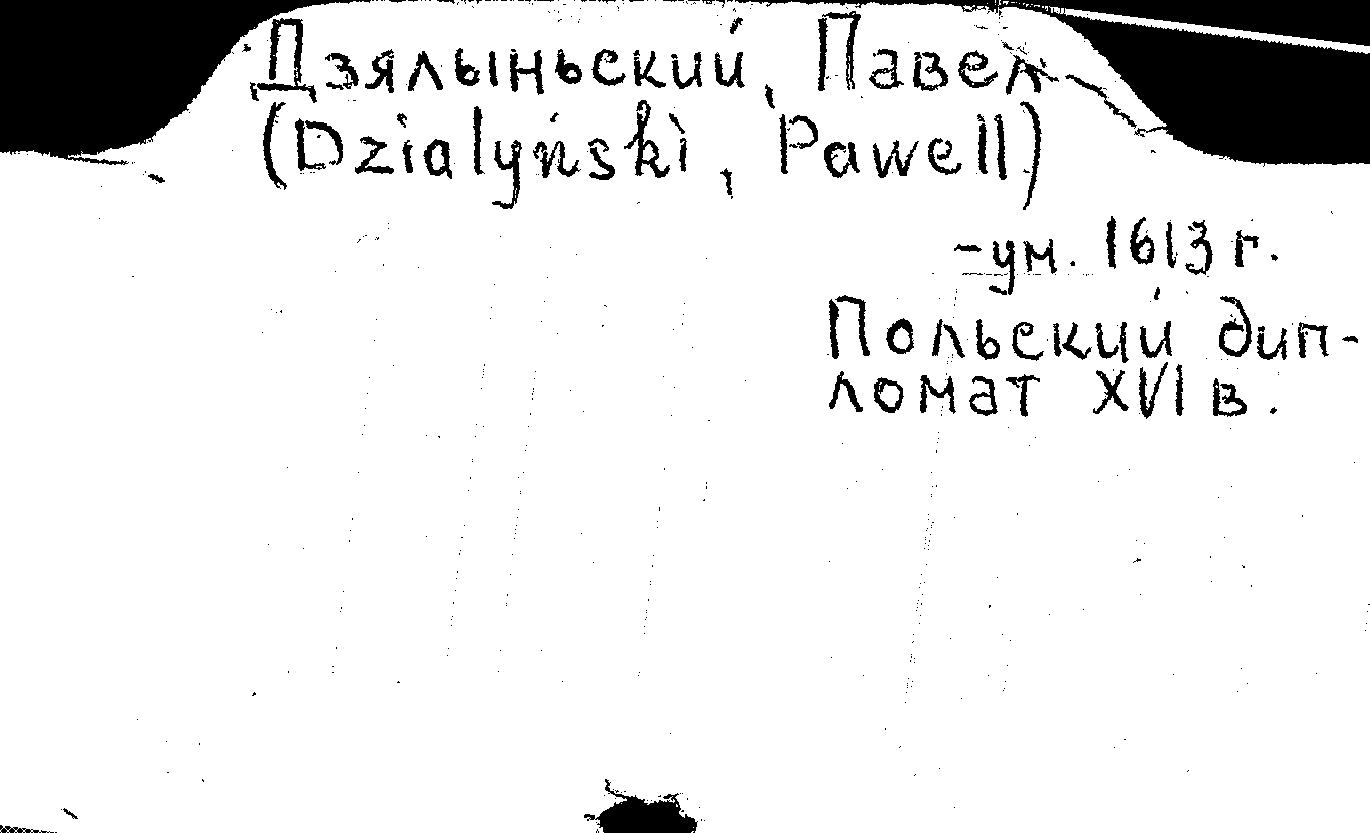 Дзялыньский, Павел
(Dzialyński, Pawell)
- ум. 1613 г.
Польский дип-
ломат XVI в.